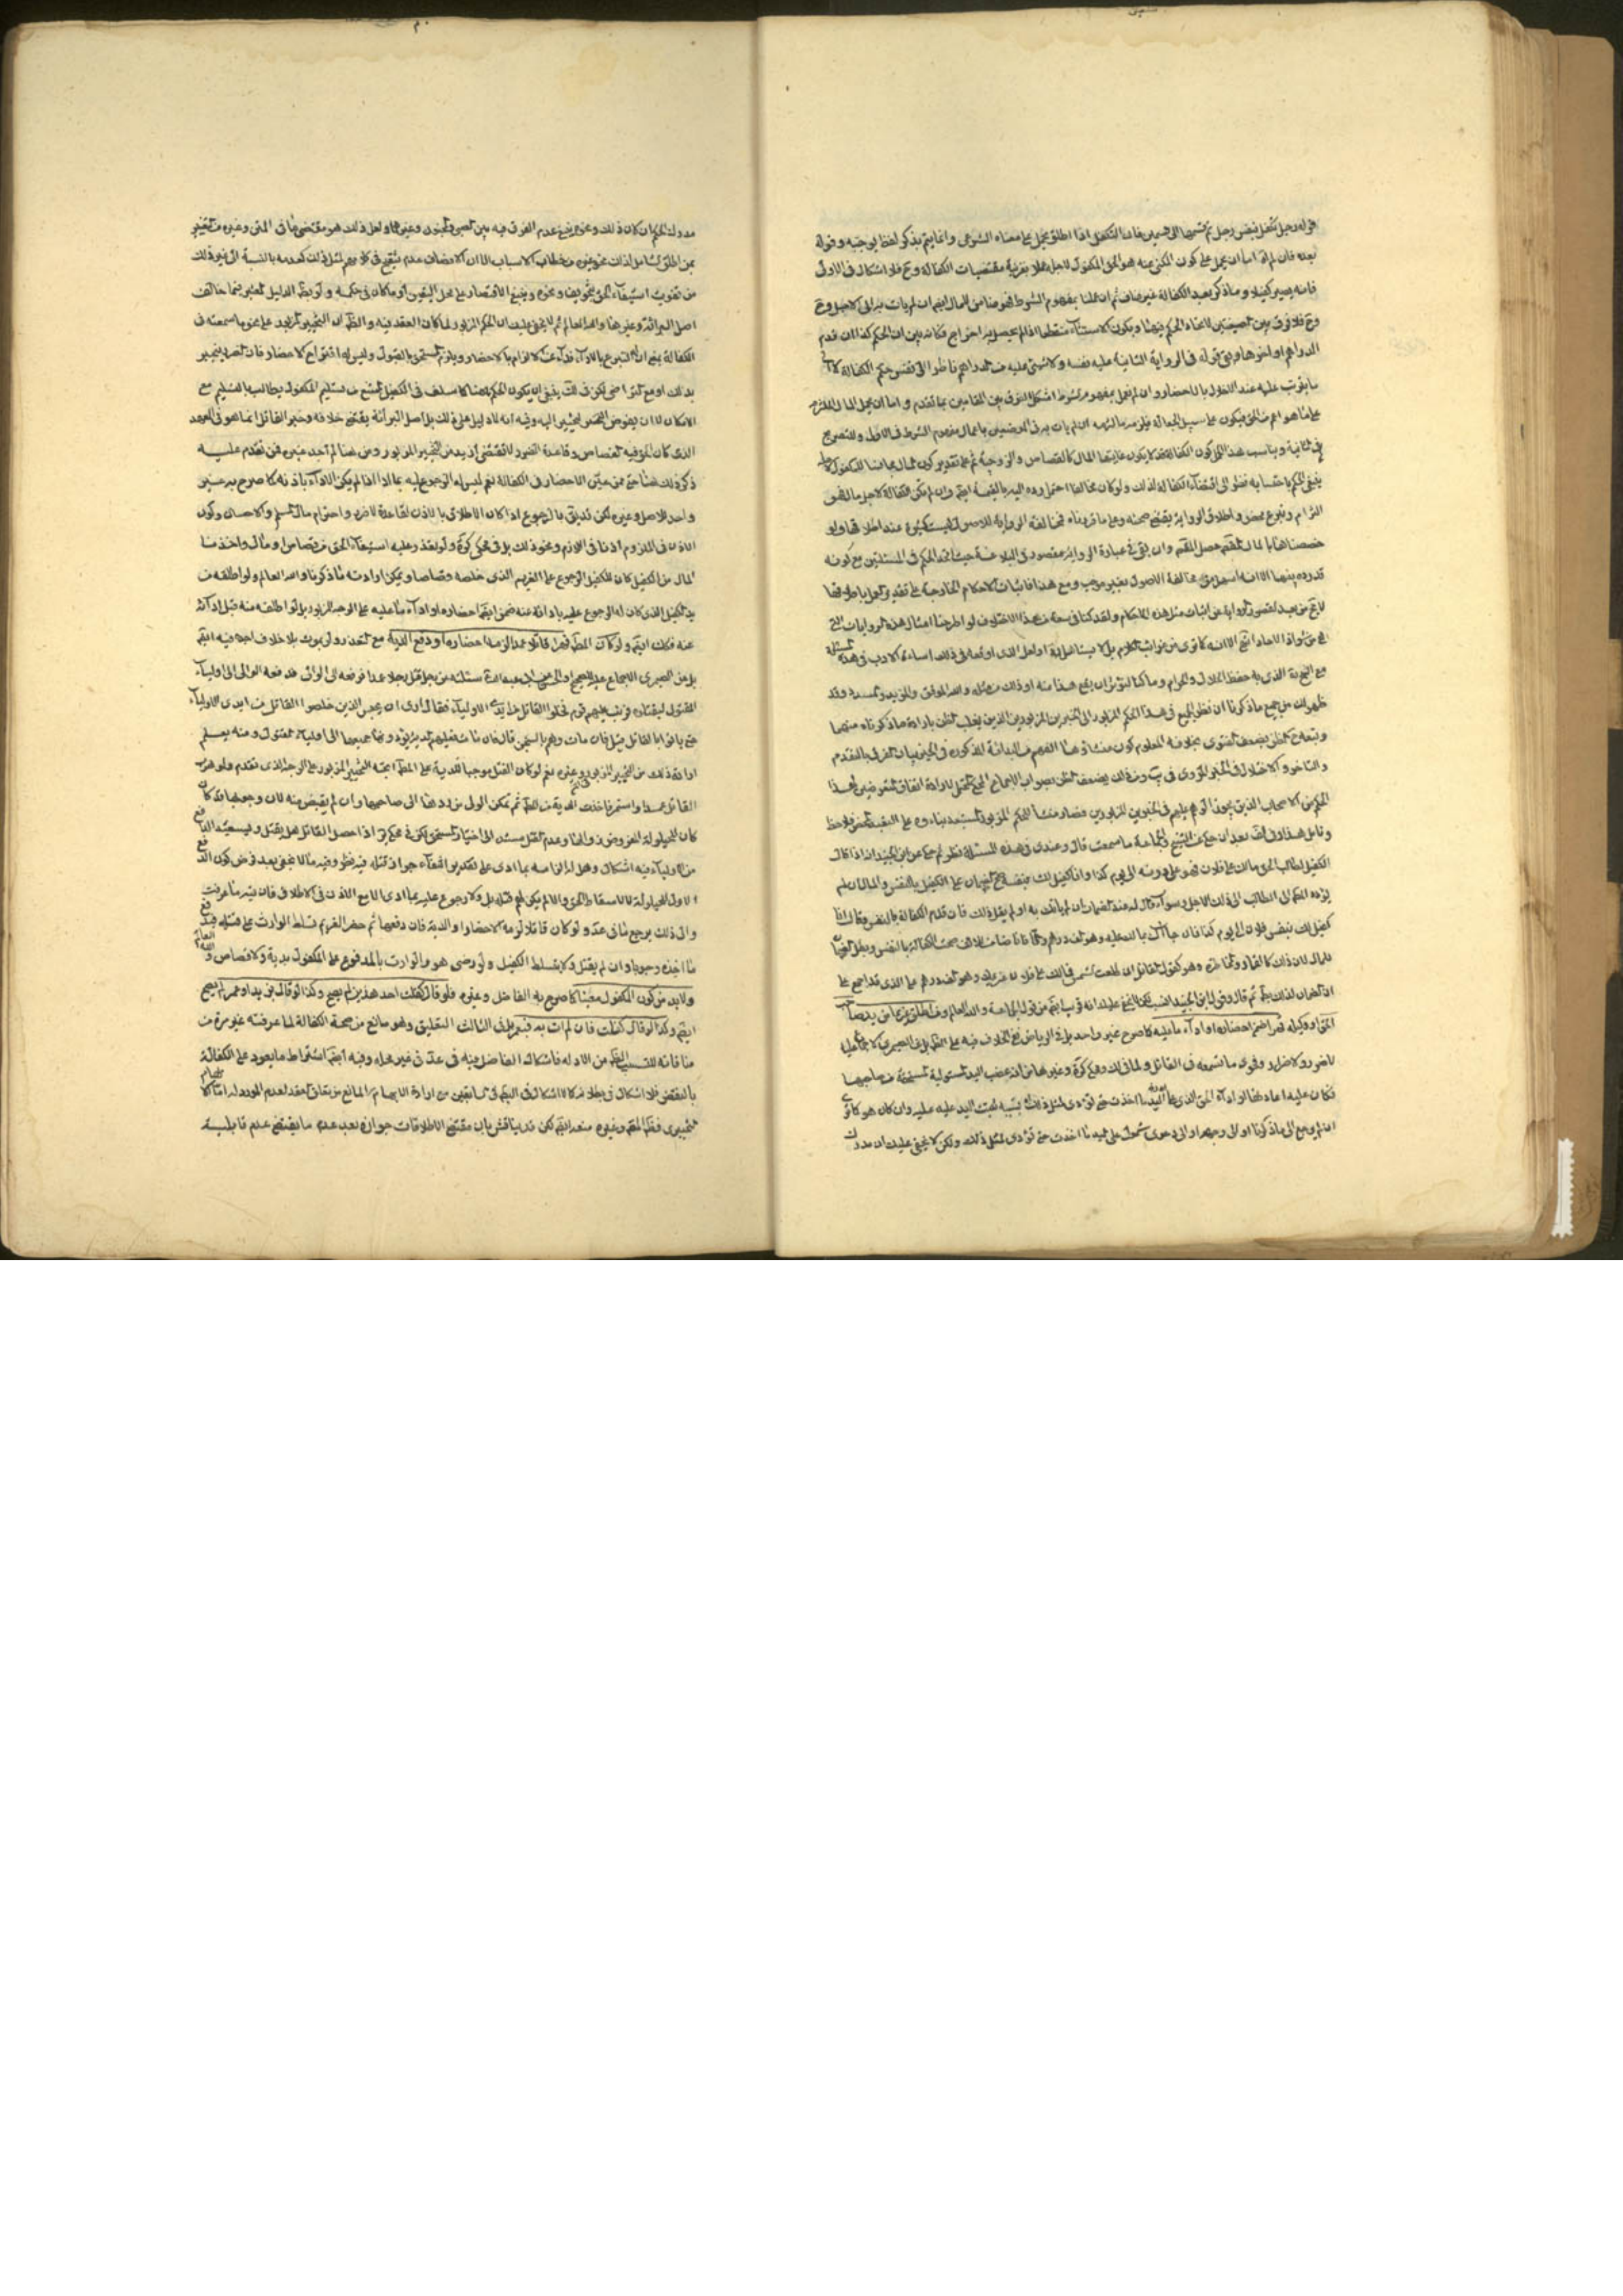 قوله رجل تكفل بنفس رجل ثم تسميتها الى خمسين فان التكفل اذا اطلق يحمل على معناه الشرعى وانما يتم بذكر لفظ يوجبه وقوله
بعده فان لم اما ان يحمل على كون المكنى عنه هو الحق المكفول لاجله عملا بقرينة مقتضيات الكفالة وح فلا اشكال فى الاولى
فانه يصير كفيلا وما ذكر بعد الكفالة غير مناف ثم ان عملنا بمفهوم الشرط فهو ضامن للمال ايضا ان لم يات به الى الاجل وح
وح فلا فرق بين الصيغتين لاتحاد الحكم فيهما ويكون الاستثناء منقطعا اذ لم يحصل به اخراج فكانه بين ان الحكم كذا ان قدم
الدراهم او اخرها وبقى قوله فى الرواية الثانية عليه نفسه ولا شىء عليه من الدراهم ناظر الى نفس حكم الكفالة لا الى
ما يترتب عليه عند الاخلال بالاحضار وان لم نعمل بمفهوم الشرط اشكل الفرق بين المقامين بما تقدم واما ان يحمل المال الملتزم
على ما هو اعم من الحق فيكون على سبيل الجعالة فيلزمه ما التزمه ان لم يات به فى الموضعين باعمال مفهوم الشرط فى الاول والتصريح
فى الثانية ويناسب هذا كون الكفالة قد لا يكون غايتها المال كالقصاص والزوجية ثم على تقدير كون المال مباينا للمكفول لاجله
ينبغى الحكم باحتسابه نظر الى اقتضاء الكفالة لذلك ولو كان مخالفا احتمل رده اليه بالقيمة ايضا وان لم تكن الكفالة لاجل مال فهو
التزام وتبرع محض واطلاق الرواية يقتضى صحته وعلى ما قررناه فمخالفة الرواية للاصول ليست كثيرة عند اطلاقها ولو
خصصناها بالمال المتقدم حصل المقصود وان بقى فى عبارة الرواية قصور فى البلاغة حيث اتحد الحكم فى المسئلتين مع كونه
قد ردد بينهما الا انه اسهل من مخالفة الاصول بغير موجب ومع هذا فاثبات الاحكام الخارجة على تقدير العمل باطلاقها
لا يخ من بعد لقصور الرواية عن اثبات مثل هذه الاحكام ولقد كنا فى سعة من هذا الاختلاف لو اطرحنا امثال هذه الروايات التى
هى من شواذ الاحاد انتهى الا انه كما ترى من غرائب الكلام بل لا يناسب او لعل الذى اوقعه فى ذلك اساءته الادب فى هذه المسئلة
مع الذى به حفظ الحلال والحرام وما كنا لنؤثر ان يقع هذا منه او ذلك من مثله والله الموفق والمؤيد والمسدد وقد
ظهر لك من جميع ما ذكرنا ان نظر الجميع فى هذا الحكم المزبور الى الخبرين المزبورين الذين يغلب الظن بارادة ما ذكرناه منهما
والتاخر والاختلاف فى الخبر المروى فى يب ومن ذلك يضعف الظن بصواب الاجماع
الحكم من الاصحاب الذين يجوز الوهم عليهم فى الخبرين المزبورين فصار منشا للحكم المزبور
وتامل هذا وفى لف بعد ان حكى عن الشيخ والجماعة ما سمعت قال وعندى فى هذه المسئلة نظر ثم حكى عن ابن الجنيد انه اذا قال
الكفيل لطالب الحق مالك على فلان فهو على دونه الى يوم كذا وانا كفيل لك بنفسه صح الضمان على الكفيل بالنفس والمال ان لم
يؤده المكفول الى الطالب الى ذلك الاجل وسواء قال له عند الضمان ان لم ياتك به او لم يقل ذلك فان قدم الكفالة بالنفس فقال انا
كفيل لك بنفس فلان الى يوم كذا فان جاء بما لك عليه وهو الف درهم والا فانا ضامن للالف صحت الكفالة بالنفس وبطل الضمان
للمال لان ذلك كالقمار والمخاطرة وهو كقول القائل ان طلعت الشمس فمالك على فلان غريمك وهو الف درهم على الذى قد اجمع على
ان الضمان لذلك باطل ثم قال وقول ابن الجنيد انسب لكن لا يخفى عليك انه قريب ايضا من قول الجماعة والله العالم ومن اطلق غريما من يد صاحب
الحق او وكيله قهرا ضمن احضاره او اداء ما عليه كما صرح به غير واحد بل فى الرياض نفى الخلاف فيه على الظاهر بل عن الصيمرى الاجماع عليه
لا ضرر ولا ضرار وفحوى ما تسمعه فى القاتل ولما فى لك ومحكى كرة وغيرها من انه غصب اليد المستولية المستحقة من صاحبها
فكان عليه اعادتها او اداء الحق الذى على اليد ما اخذت حتى تؤدى لمثل ذلك وان كان هو كما ترى
ان لم يرجع الى ما ذكرنا او الى وجهه او الى دعوى شمول على اليد ما اخذت حتى تؤدى لمثل ذلك ولكن لا يخفى عليك ان مدرك
مدرك الحكم ان كان ذلك ونحوه ينبغى عدم الفرق فيه بين الصبى والمجنون وغيرهما ولعل ذلك هو مقتضى ما فى المتن وغيره من التعبير
بمن اطلق الشامل لذلك من خطاب الاسباب الا ان الانصاف عدم تنقيح فى كلامهم لمثل ذلك كعدمه بالنسبة الى غير ذلك
من تفويت استيفاء الحق بتخويف ونحوه وينبغى الاقتصار على محل اليقين او ما كان فى حكمه ولو بظاهر الدليل المعتبر فيما خالف
اصل البرائة وغيرها والله العالم ثم لا يخفى عليك ان الحكم المزبور لما كان العقد فيه والظاهر ان التخيير المزبور على نحو ما سمعته فى
الكفالة بمعنى ان له التبرع بالاداء فداء عن الالزام بالاحضار ويلزم المستحق بالقبول وليس له اقتراح الاحضار فان الضرر ينجبر
بذلك او مع التراضى لكن فى لك ينبغى ان يكون الحكم هنا كما سلف فى الكفيل الممتنع من تسليم المكفول يطالب بالتسليم مع
الامكان لا ان يفوض التخيير اليه وفيه انه لا دليل على ذلك بل اصل البرائة يقتضى خلافه وخبر القاتل انما هو فى العمد
الذى كان الحق فيه القصاص وقاعدة الضرر لا تقتضى ازيد من التخيير المزبور ومن هنا لم اجد ممن تقدم عليه
ذكر ذلك هنا حتى ممن عين الاحضار فى الكفالة نعم ليس له الرجوع عليه بما ادا اذا لم يكن الاداء باذنه كما صرح به غير
واحد للاصل وغيره لكن قد يق بالرجوع اذا كان الاطلاق بالاذن لقاعدة لا ضرر واحترام مال المسلم والاحسان وكون
الاذن فى الملزوم اذنا فى اللازم ونحو ذلك بل فى محكى كرة ولو تعذر وعليه استيفاء الحق من قصاص او مال واخذ منا
المال من الكفيل كان للكفيل الرجوع على الغريم الذى خلصه قصاصا ويمكن ارادته ما ذكرنا والله العالم ولو اطلقه من
يد الكفيل الذى كان له الرجوع عليه باداء عنه ضمن ايضا احضاره او اداء ما عليه على الوجه المزبور بل لو اطلقه منه قبل ادائه
عنه فكذلك ايضا ولو كان المطلق قهرا قاتلا عمدا لزمه احضاره او دفع الدية مع التعذر ولو بموت بلا خلاف اجده فيه ايضا
بل عن الصيمرى الاجماع عليه للصحيح او الحسن ابى عبد الله سئلته عن رجل قتل رجلا عمدا فرفعه الى الوالى فدفعه الوالى الى اولياء
المقتول ليقتلوه فوثب عليهم قوم فخلوا القاتل من ايدى الاولياء فقال ارى ان يحبس الذين خلصوا القاتل من ايدى الاولياء
حتى ياتوا بالقاتل قيل فان مات وهم بالسجن قال فان مات فعليهم الدية يؤدونها جميعها الى اولياء المقتول ومنه يعلم
ارادة ذلك من التخيير المزبور وغيره نعم لو كان القتل موجبا للدية على المطلق اتجه التخيير المزبور على الوجه الذى تقدم ولو هرب
القاتل عمدا واستمر فاخذت الدية من المطلق ثم تمكن الولى من ردها الى صاحبها وان لم يقتص منه لان وجوبها انما كان
كان للحيلولة المفروض زوالها وعدم القتل مستند الى اختيار المستحق لكن فى محكى كرة اذا حصل القاتل هل يقتل ويستعيد الدافع
من الاولياء فيه اشكال وهل له الزامه بما ادى على تقدير انتفاء جواز قتله فيه نظر وفيه ما لا يخفى بعد فرض كون الدفع
الاول للحيلولة لا لاسقاط الحق والا لم يكن لهم قتله بل ولا رجوع عليه بما ادى الا مع الاذن فى الاطلاق فان فيه ما عرفت
والى ذلك يرجع ما فى عد ولو كان قاتلا لزمه الاحضار او الدية فان دفعها ثم حضر الغريم تسلط الوارث على قتله فيدفع
ما اخذه وجوبا وان لم يقتل ولا يتسلط الكفيل ولو رضى هو والوارث بالمدفوع على المكفول بدية ولا قصاص والله العالم
ولا بد من كون المكفول معينا كما صرح به الفاضل وغيره فلو قال كفلت احد هذين لم يصح وكذا لو قال بزيد او عمرو لم يصح
ايضا وكذا لو قال كفلت فان لم ات به فبعمرو بل فى الثالث التعليق وهو مانع من صحة الكفالة لما عرفته غير مرة من
منافاته للتسبيب الظاهر من الادلة فاشكال الفاضل فيه فى عد فى غير محله وفيه ايضا اشتراط ما يعود على الكفالة
بالنقض فلا اشكال فى بطلانه كما لا اشكال فى البطلان فى السابقين مع ارادة الابهام المانع من تعلق العقد لعدم المورد له اما الابهام
التخييرى فظاهر المتن وغيره منعه ايضا لكن قد يناقش بان مقتضى الاطلاقات جوازه بعد عدم ما يقتضى عدم قابلية